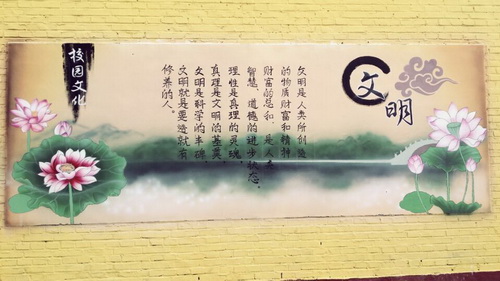 文明
文明是人类所创造
的物质财富和精神
财富的总和，是人类
智慧、道德的进步状态。
理性是真理的灵魂，
真理是文明的基奠，
文明是科学的丰碑，
文明就是要造就有
修养的人。
校园文化